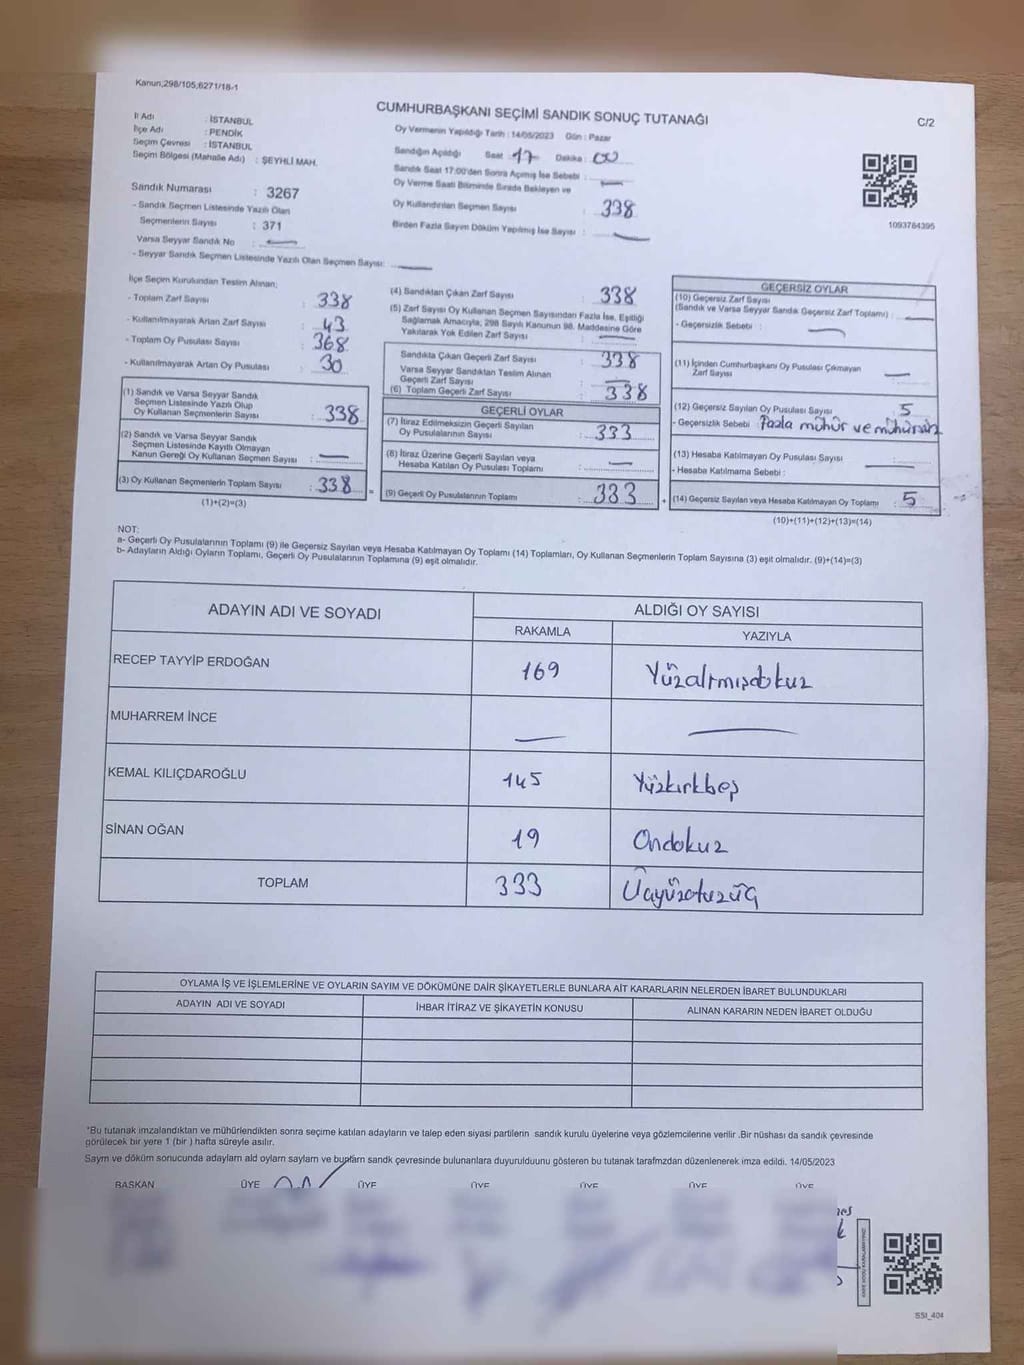 Kanun;298/105;6271/18-1
CUMHURBAŞKANI SEÇİMİ SANDIK SONUÇ TUTANAĞI
C/2
İl Adı : İSTANBUL
İlçe Adı : PENDİK
Seçim Çevresi : İSTANBUL
Seçim Bölgesi (Mahalle Adı) : ŞEYHLİ MAH.
Sandık Numarası : 3267
- Sandık Seçmen Listesinde Yazılı Olan
Seçmenlerin Sayısı : 371
Varsa Seyyar Sandık No : —
- Seyyar Sandık Seçmen Listesinde Yazılı Olan Seçmen Sayısı: —
Oy Vermenin Yapıldığı Tarih : 14/05/2023 Gün : Pazar
Sandığın Açıldığı Saat : 17 Dakika : 00
Sandık Saat 17:00'den Sonra Açımış İse Sebebi : —
Oy Verme Saati Bitiminde Sırada Bekleyen ve
Oy Kullandırılan Seçmen Sayısı : 338
Birden Fazla Sayım Döküm Yapılmış İse Sayısı : —
1093784395
İlçe Seçim Kurulundan Teslim Alınan;
- Toplam Zarf Sayısı : 338
- Kullanılmayarak Artan Zarf Sayısı : 43
- Toplam Oy Pusulası Sayısı : 368
- Kullanılmayarak Artan Oy Pusulası : 30
(1) Sandık ve Varsa Seyyar Sandık
Seçmen Listesinde Yazılı Olup
Oy Kullanan Seçmenlerin Sayısı : 338
(2) Sandık ve Varsa Seyyar Sandık
Seçmen Listesinde Kayıtlı Olmayan
Kanun Gereği Oy Kullanan Seçmen Sayısı : —
(3) Oy Kullanan Seçmenlerin Toplam Sayısı : 338 =
(1)+(2)=(3)
(4) Sandıktan Çıkan Zarf Sayısı : 338
(5) Zarf Sayısı Oy Kullanan Seçmen Sayısından Fazla İse, Eşitliği
Sağlamak Amacıyla; 298 Sayılı Kanunun 98. Maddesine Göre
Yakılarak Yok Edilen Zarf Sayısı : —
Sandıkta Çıkan Geçerli Zarf Sayısı : 338
Varsa Seyyar Sandıktan Teslim Alınan
Geçerli Zarf Sayısı : —
(6) Toplam Geçerli Zarf Sayısı : 338
GEÇERLİ OYLAR
(7) İtiraz Edilmeksizin Geçerli Sayılan
Oy Pusulalarının Sayısı : 333
(8) İtiraz Üzerine Geçerli Sayılan veya
Hesaba Katılan Oy Pusulası Toplamı : —
(9) Geçerli Oy Pusulalarının Toplamı : 333 +
GEÇERSİZ OYLAR
(10) Geçersiz Zarf Sayısı
(Sandık ve Varsa Seyyar Sandık Geçersiz Zarf Toplamı) : —
- Geçersizlik Sebebi : —
(11) İçinden Cumhurbaşkanı Oy Pusulası Çıkmayan
Zarf Sayısı : —
(12) Geçersiz Sayılan Oy Pusulası Sayısı : 5
- Geçersizlik Sebebi : Fazla mühür ve mühürsüz
(13) Hesaba Katılmayan Oy Pusulası Sayısı : —
- Hesaba Katılmama Sebebi :
(14) Geçersiz Sayılan veya Hesaba Katılmayan Oy Toplamı : 5
(10)+(11)+(12)+(13)=(14)
NOT:
a- Geçerli Oy Pusulalarının Toplamı (9) ile Geçersiz Sayılan veya Hesaba Katılmayan Oy Toplamı (14) Toplamları, Oy Kullanan Seçmenlerin Toplam Sayısına (3) eşit olmalıdır. (9)+(14)=(3)
b- Adayların Aldığı Oyların Toplamı, Geçerli Oy Pusulalarının Toplamına (9) eşit olmalıdır.
ADAYIN ADI VE SOYADI ALDIĞI OY SAYISI
RAKAMLA YAZIYLA
RECEP TAYYİP ERDOĞAN 169 Yüzaltmışdokuz
MUHARREM İNCE — —
KEMAL KILIÇDAROĞLU 145 Yüzkırkbeş
SİNAN OĞAN 19 Ondokuz
TOPLAM 333 Üçyüzotuzüç
OYLAMA İŞ VE İŞLEMLERİNE VE OYLARIN SAYIM VE DÖKÜMÜNE DAİR ŞİKAYETLERLE BUNLARA AİT KARARLARIN NELERDEN İBARET BULUNDUKLARI
ADAYIN ADI VE SOYADI İHBAR İTİRAZ VE ŞİKAYETİN KONUSU ALINAN KARARIN NEDEN İBARET OLDUĞU
*Bu tutanak imzalandıktan ve mühürlendikten sonra seçime katılan adayların ve talep eden siyasi partilerin sandık kurulu üyelerine veya gözlemcilerine verilir .Bir nüshası da sandık çevresinde
görülecek bir yere 1 (bir ) hafta süreyle asılır.
Sayım ve döküm sonucunda adayların ald oyların sayları ve bunların sandk çevresinde bulunanlara duyurulduunu gösteren bu tutanak tarafmzdan düzenlenerek imza edildi. 14/05/2023
BAŞKAN ÜYE ÜYE ÜYE ÜYE ÜYE ÜYE
SSI_404